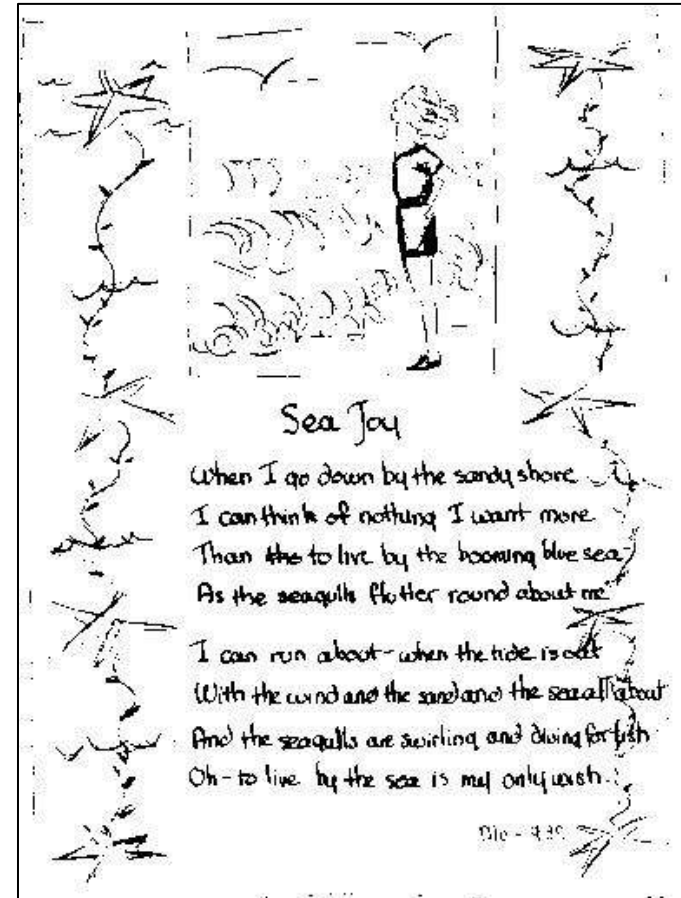 Sea Joy
When I go down by the sandy shore
I can think of nothing I want more
Than the to live by the booming blue sea
As the seagulls flutter round about me
I can run about - when the tide is out
With the wind and the sand and the sea all about
And the seagulls are swirling and diving for fish
Oh - to live by the sea is my only wish.